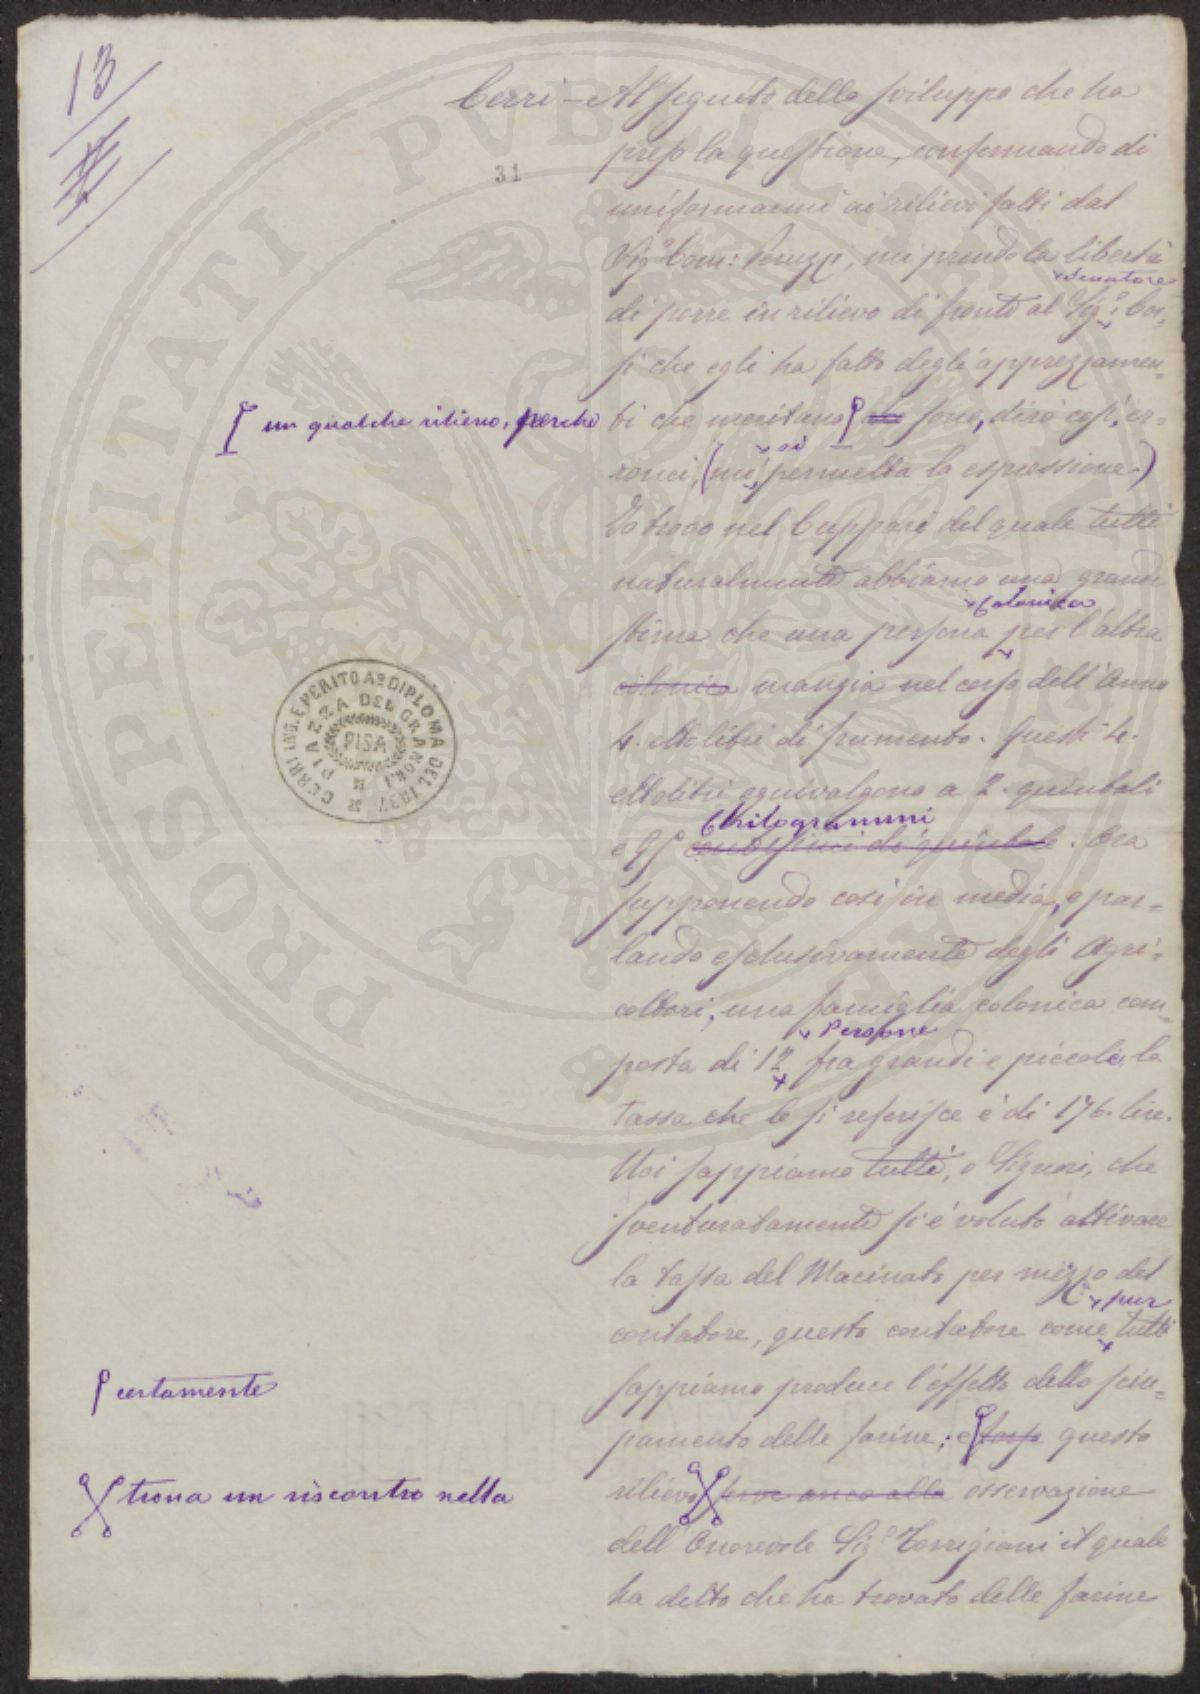 13
31
Cerri - Al seguito dello sviluppo che ha
preso la questione, confermando di
uniformarmi ai rilievi fatti dal
Sig.r Com: Peruzzi, mi prendo la libertà
Senatore
di porre in rilievo di fronte al Sig.r: Cor=
si che egli ha fatto degli apprezzamen=
un qualche rilievo, perchè
ti che meritano sono, dirò così, er=
ronei, (mi si permetta la espressione.)
Io trovo nel Cuppari del quale tutti
naturalmente abbiamo una grande
Colonica
stima che una persona per l'altra
colonica mangia nel corso dell'Anno
4. ettolitri di frumento. Questi 4.
ettolitri equivalgono a 2. quintali
Chilogrammi
e centesimi di quintale. Ora
supponendo così in media, e par=
lando esclusivamente degli Agri=
coltori, una famiglia colonica com=
Persone
posta di 12 fra grandi e piccoli la
tassa che le si referisce è di 176. lire.
Noi sappiamo tutti, o Signori, che
sventuratamente si è voluto attivare
la tassa del Macinato per mezzo del
pur
contatore, questo contatore come tutti
certamente
sappiamo produce l'effetto dello sciu=
pamento delle farine; e forse questo
trova un riscontro nella
rilievo serve anco alla osservazione
dell'Onorevole Sig.r Torrigiani il quale
ha detto che ha trovato delle farine
CERRI ING. E PERITO Aº DIPLOMA DEL 1837
PIAZZA DEL GRANO
PISA
PROSPERITATI PVBLICAE